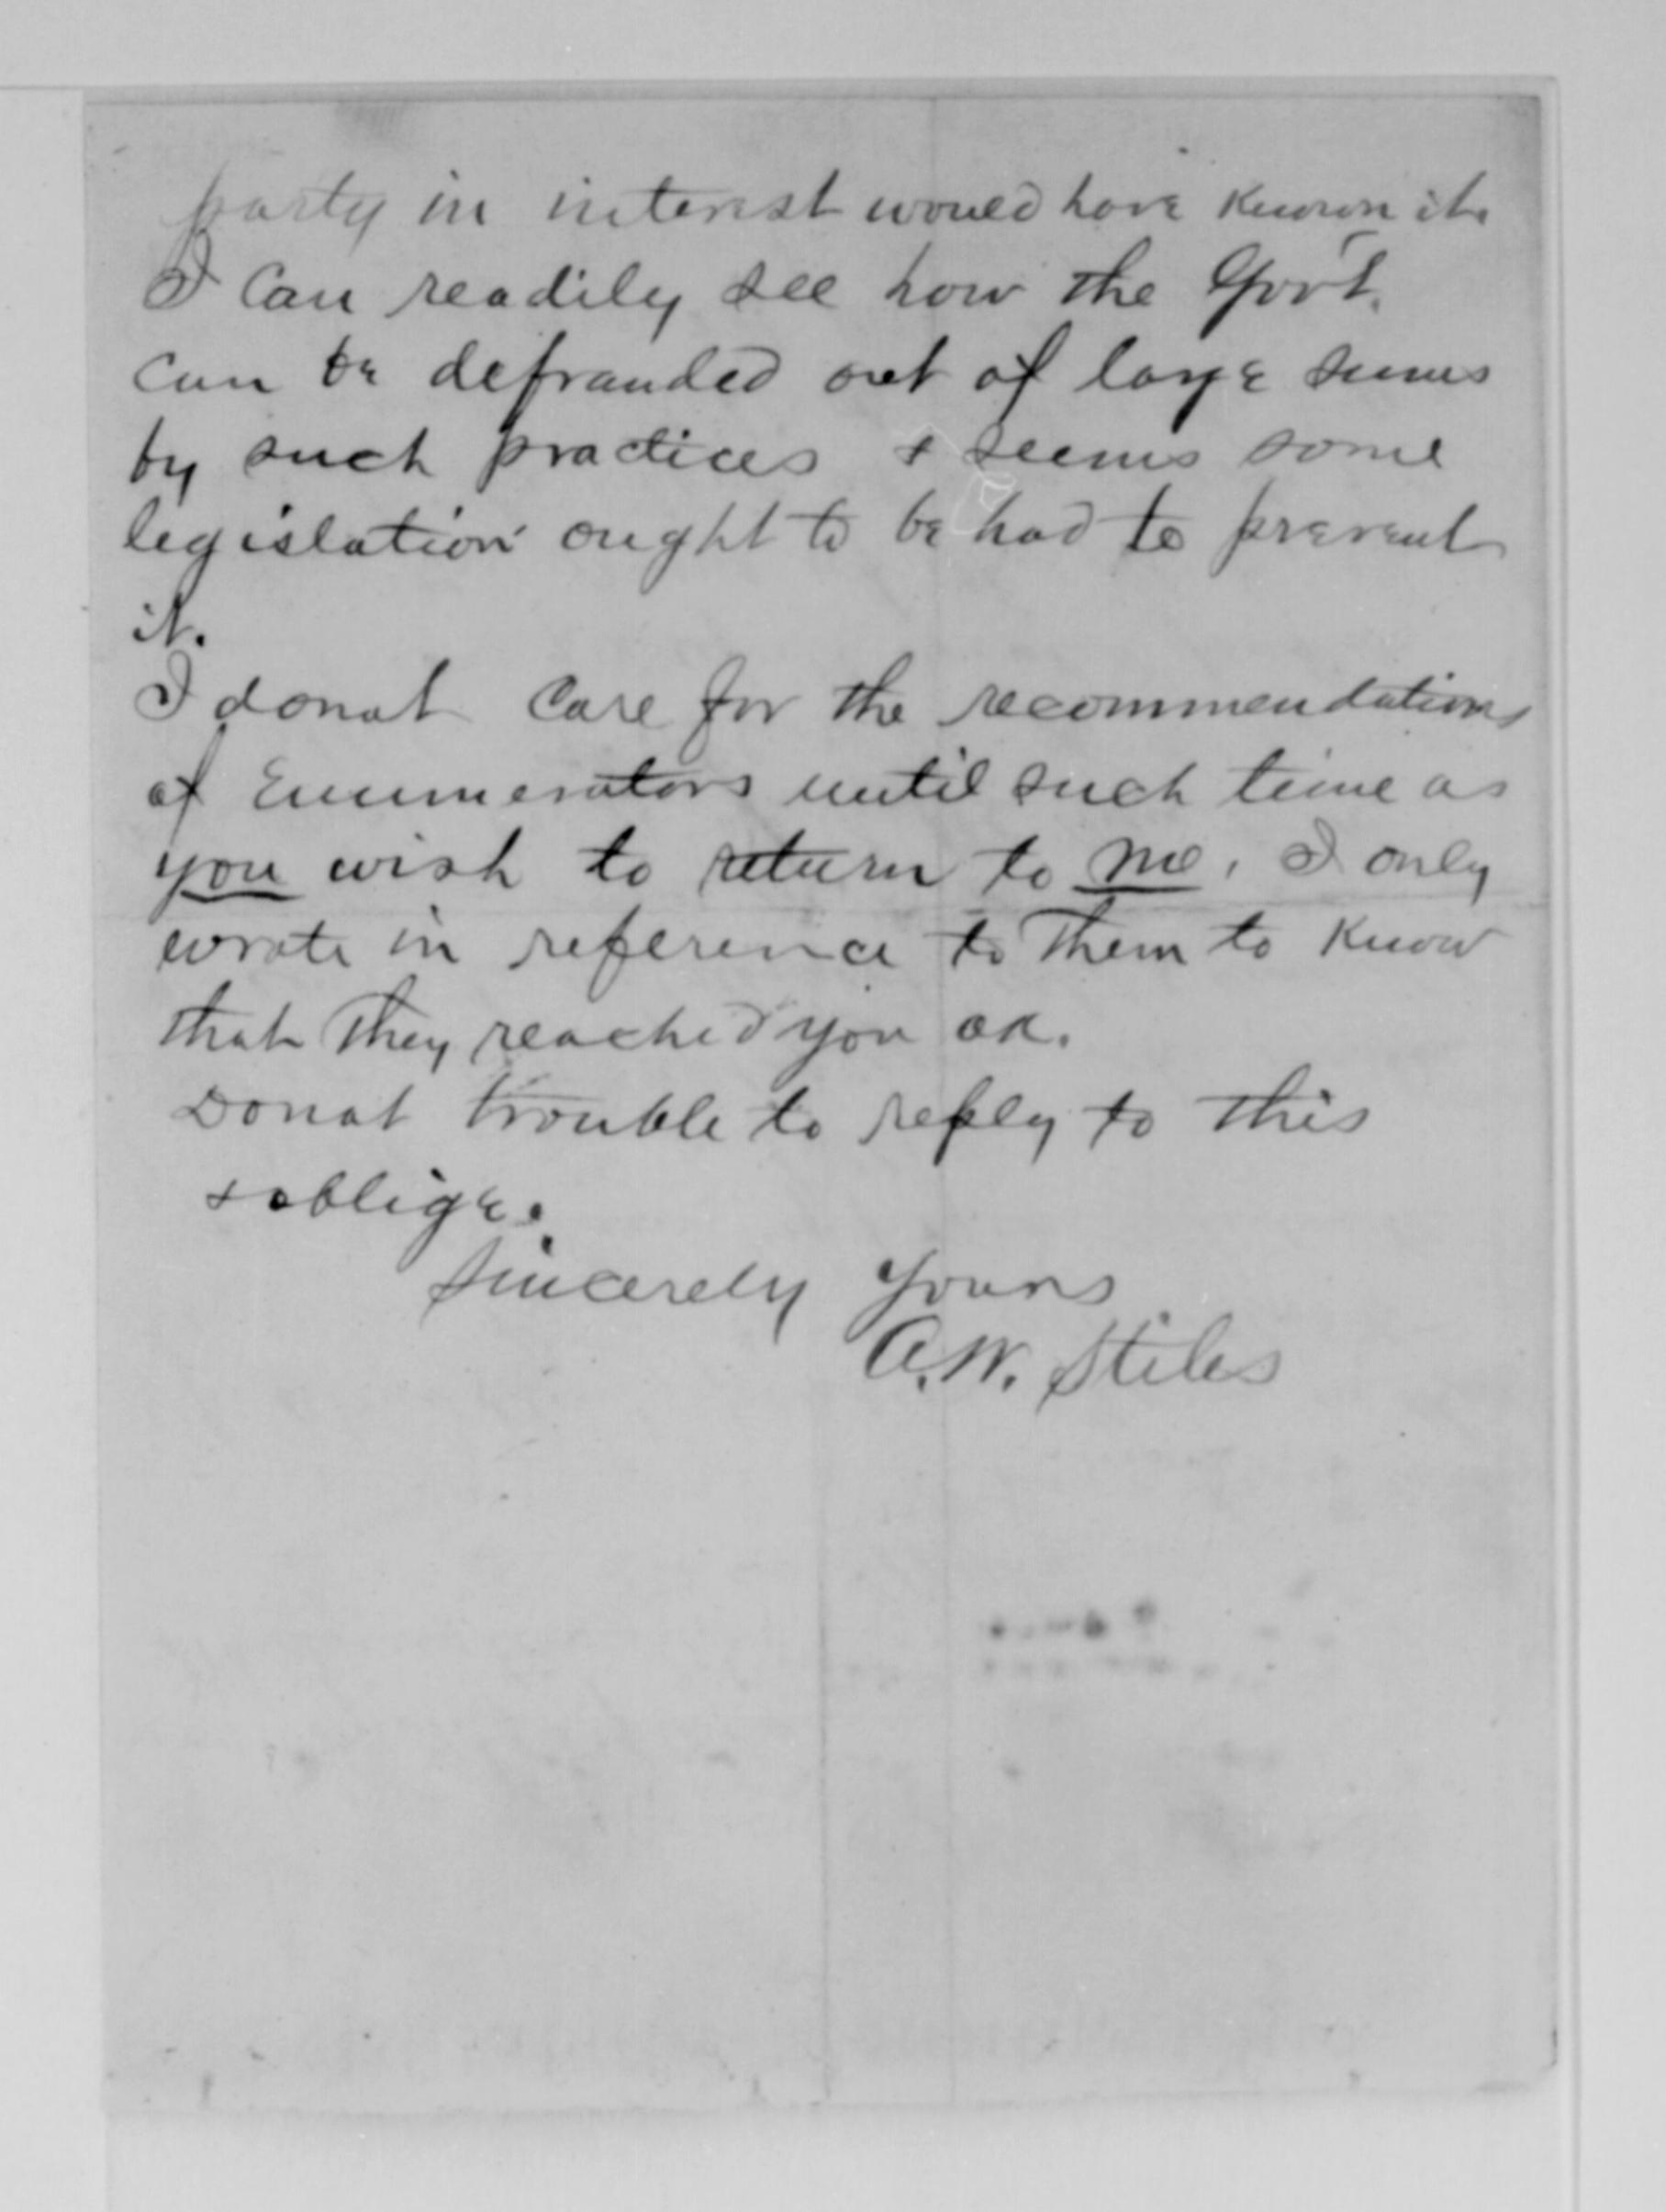 party in interest would have known it.
I can readily see how the Gov't.
can be defrauded out of large sums
by such practices & seems some
legislation ought to be had to prevent
it.
I donot care for the recommendations
of Enumerators until such time as
you wish to return to me. I only
wrote in reference to them to know
that they reached you ok.
Donot trouble to reply to this
& oblige.
Sincerely Yours
A.W. Stiles